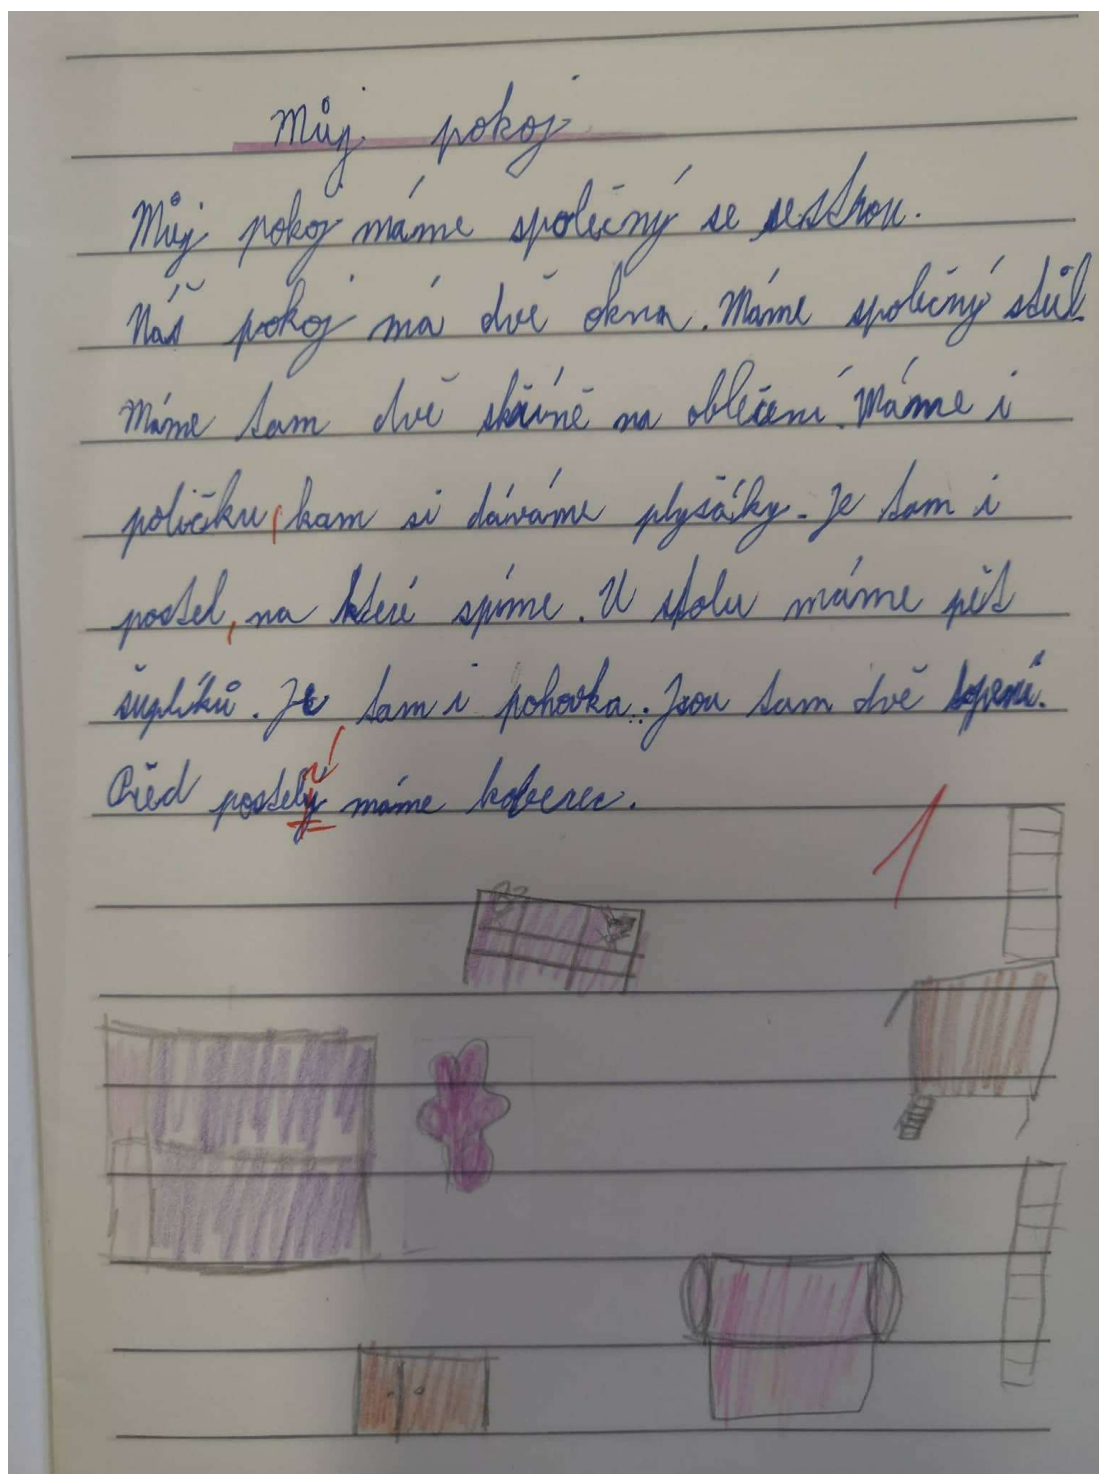 Můj pokoj
Můj pokoj máme společný se sestrou.
Náš pokoj má dvě okna. Máme společný stůl
Máme tam dvě skříně na oblečení. Máme i
poličku, kam si dáváme plyšáky. Je tam i
postel, na které spíme. U stolu máme pět
šuplíků. Je tam i pohovka. Jsou tam dvě topení.
Před postelý máme koberec.
1